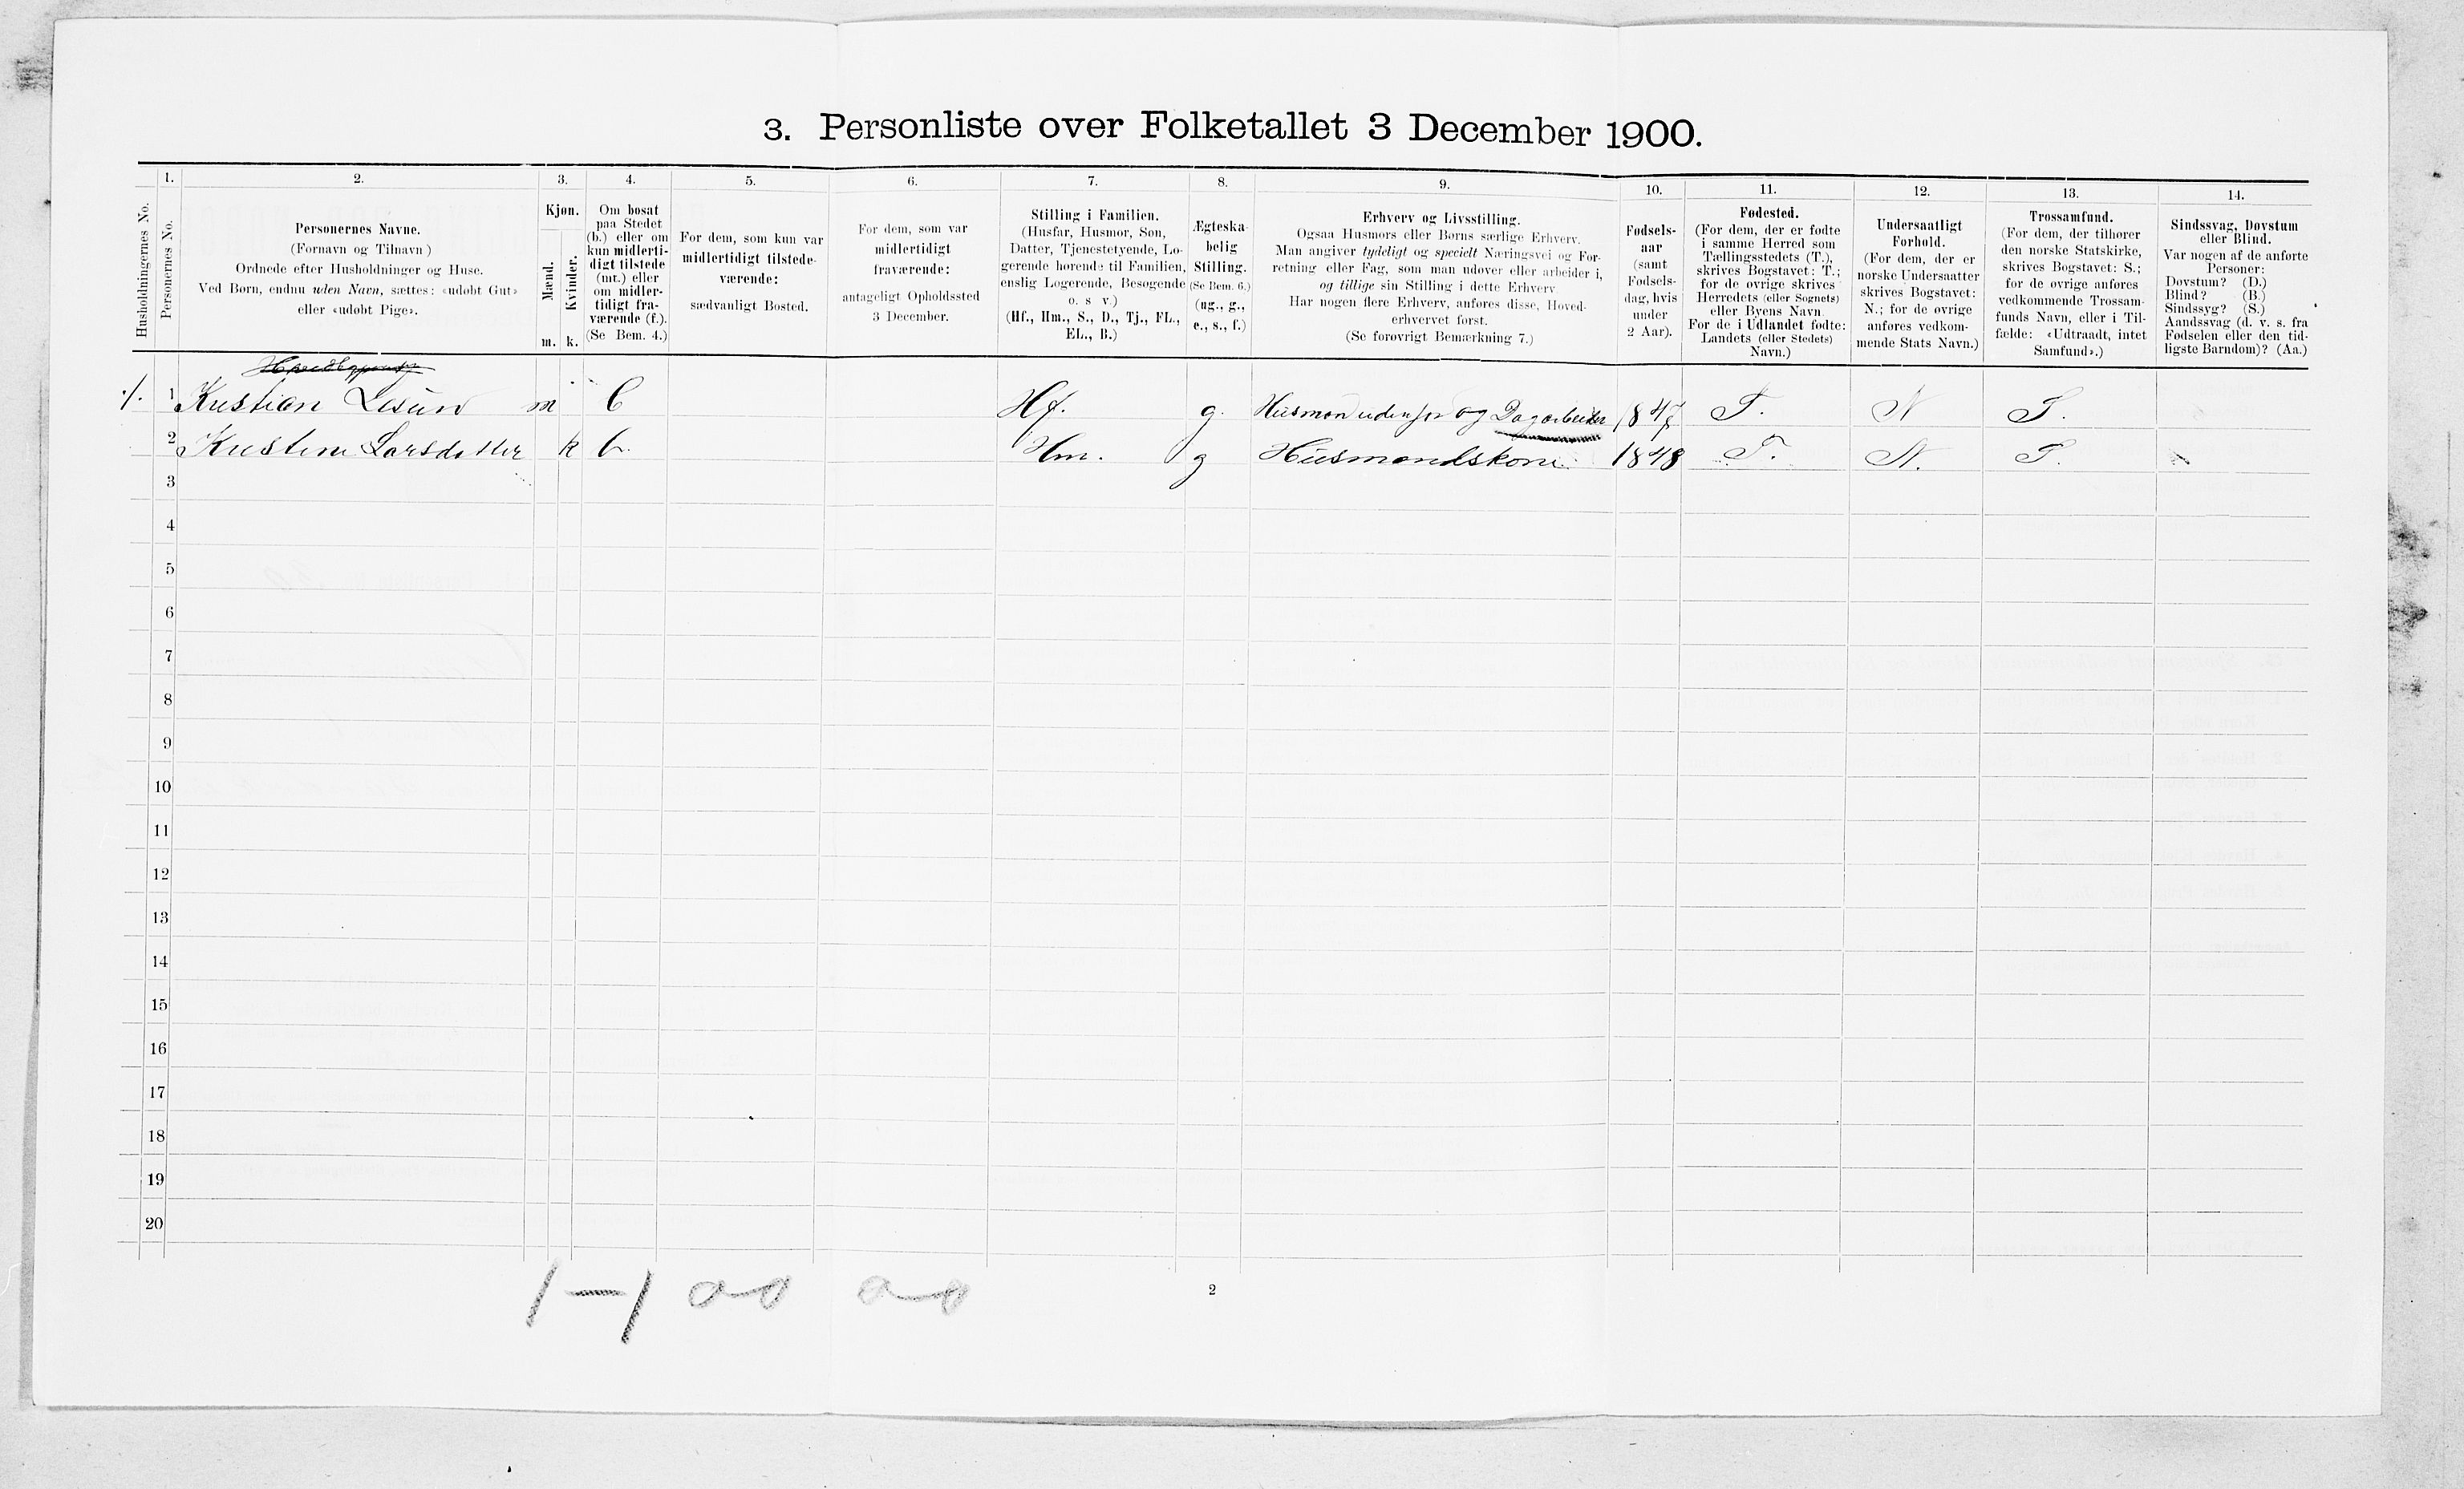 3. Personliste over Folketallet 3 December 1900.
Husholdningernes No.
1.
Personernes No.
2.
Personernes Navne.
(Fornavn og Tilnavn)
Ordnede efter Husholdninger og Huse.
Ved Børn, endnu uden Navn, sættes: «udøbt Gut»
eller «udøbt Pige».
3.
Kjøn.
Mænd.
Kvinder.
m. k.
4.
Om bosat
paa Stedet
(b.) eller om
kun midlerti-
digt tilstede
(mt.) eller
om midler-
tidigt fra-
værende (f.).
(Se Bem. 4.)
5.
For dem, som kun var
midlertidigt tilstede-
værende:
sædvanligt Bosted.
6.
For dem, som var
midlertidigt
fraværende:
antageligt Opholdssted
3 December.
7.
Stilling i Familien.
(Husfar, Husmor, Søn,
Datter, Tjenestetyende, Lo-
gerende hørende til Familien,
enslig Logerende, Besøgende
o. s v.)
(Hf., Hm., S., D., Tj., FL.,
EL., B.)
8.
Ægteska-
belig
Stilling.
(Se Bem. 6.)
(ug., g.,
e., s., f.)
9.
Erhverv og Livsstilling.
Ogsaa Husmors eller Børns særlige Erhverv.
Man angiver tydeligt og specielt Næringsvei og For-
retning eller Fag, som man udøver eller arbeider i,
og tillige sin Stilling i dette Erhverv
Har nogen flere Erhverv, anføres disse, Hoved-
erhvervet først.
(Se forøvrigt Bemærkning 7.)
10.
Fødsels-
aar
(samt
Fødsels-
dag, hvis
under
2 Aar).
11.
Fødested.
(For dem, der er fødte
i samme Herred som
Tællingsstedets (T.),
skrives Bogstavet: T.;
for de øvrige skrives
Herredets (eller Sognets)
eller Byens Navn
For de i Udlandet fødte:
Landets (eller Stedets)
Navn.)
12.
Undersaatligt
Forhold.
(For dem, der er
norske Undersaatter
skrives Bogstavet:
N.; for de øvrige
anføres vedkom-
mende Stats Navn.)
13.
Trossamfund.
(For dem, der tilhører
den norske Statskirke,
skrives Bogstavet: S.;
for de øvrige anføres
vedkommende Trossam-
funds Navn, eller i Til-
fælde: «Udtraadt, intet
Samfund».)
14.
Sindssvag, Døvstum
eller Blind.
Var nogen af de anførte
Personer:
Døvstum? (D.)
Blind? (B.)
Sindssyg? (S.)
Aandssvag (d. v. s. fra
Fødselen eller den tid-
ligste Barndom)? (Aa.)
1 Kristian m b Hf. g. Husmand og Dagarbeider 1847 T. N S.
2 Kristine Larsdatter k b. Hm. g Husmandskone 1848 T. N. S.
3
4
5
6
7
8
9
10
11
12
13
14
15
16
17
18
19
20
1 — 1 0-0 0-0
2